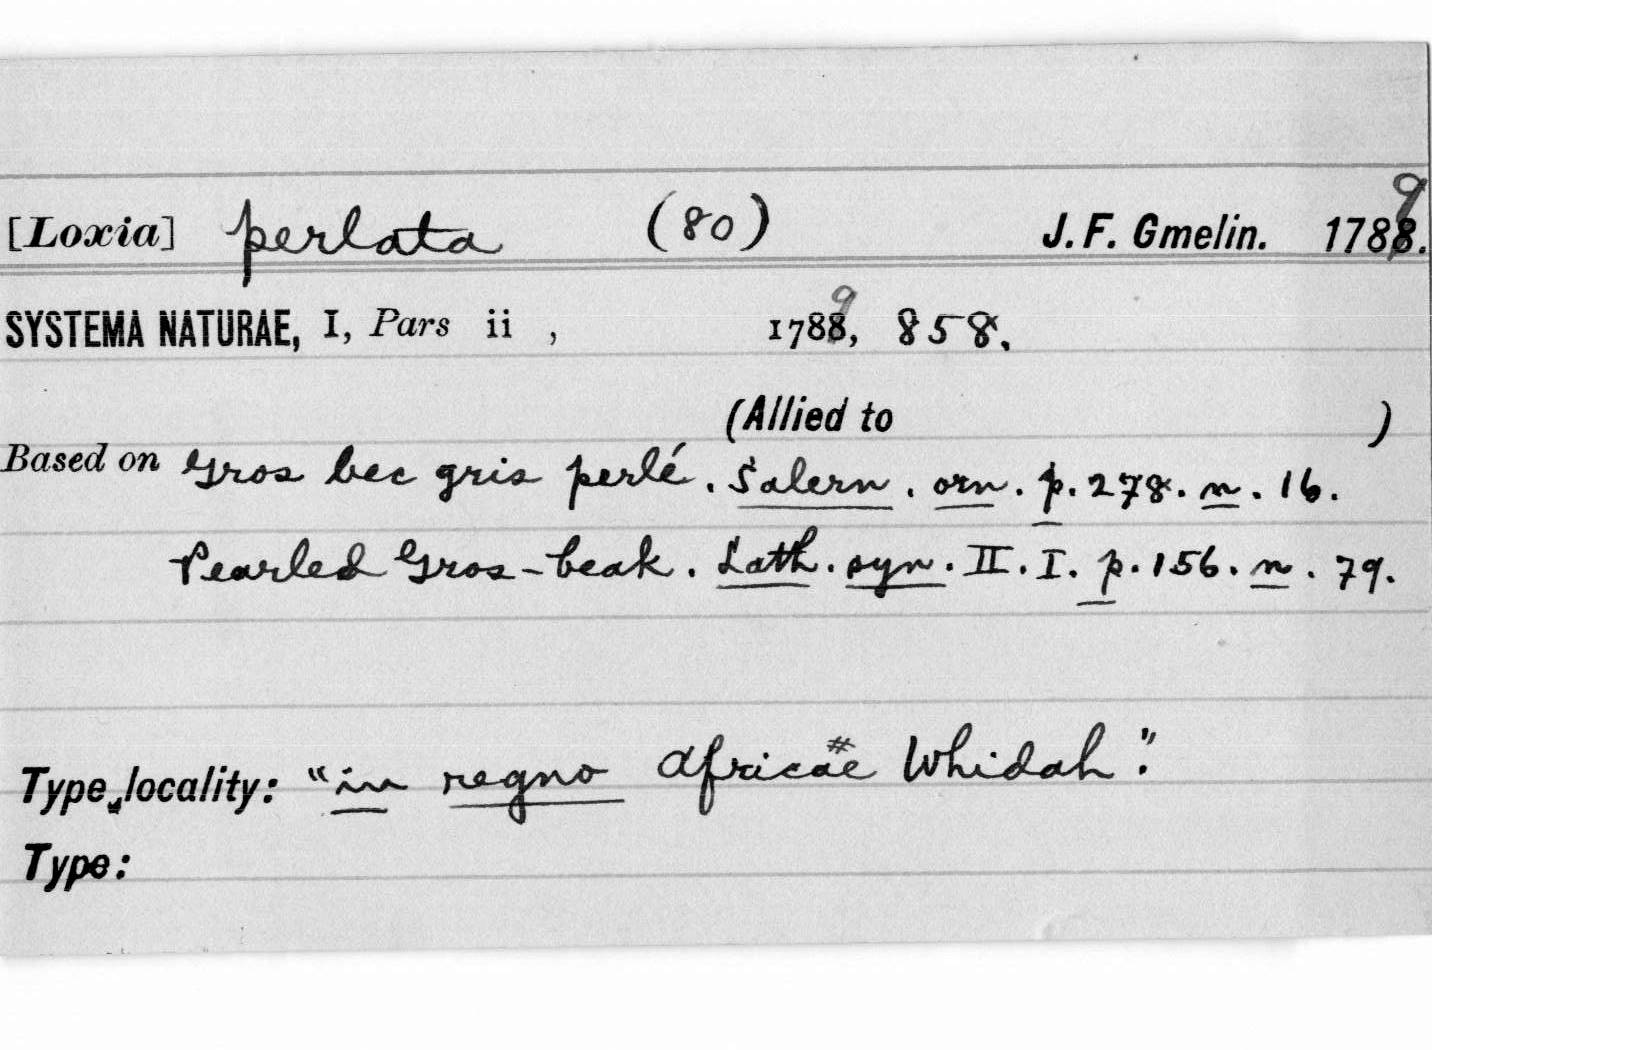 [Loxia] perlata (80) J. F. Gmelin. 1789.
SYSTEMA NATURAE, I, Pars ii , 1789, 858.
(Allied to )
Based on Gros bec gris perlé. Salern. orn. p. 278. n. 16.
Pearled Gros-beak. Lath. syn. II. I. p. 156. n. 79.
Type locality: "in regno Africae Whidah".
Type: